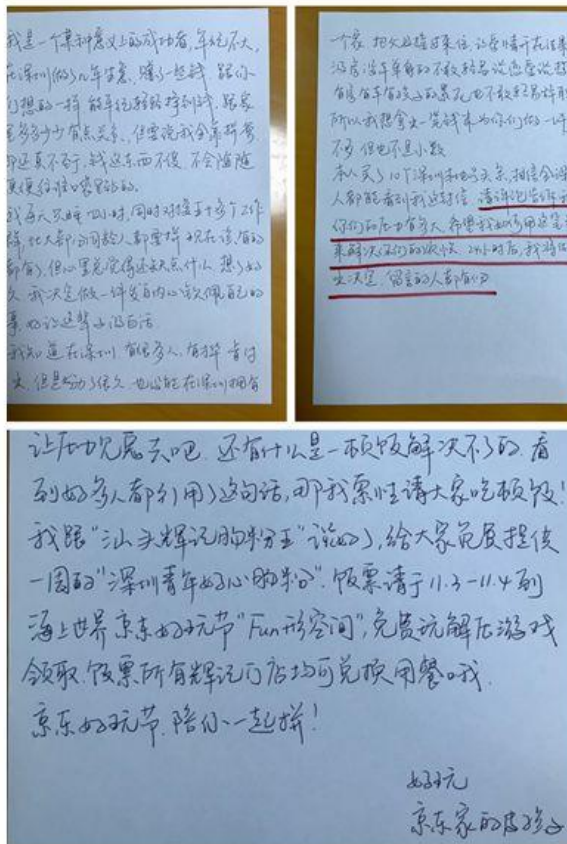 我是一个某种意义上的成功者,年纪不大,
在深圳做了几年生意,赚了一些钱,跟你
们想的一样,能年纪轻轻挣到钱,跟家
里多多少少有点关系,但要说我全靠拼爹,
那还真不至于,钱这东西不傻,不会随随
便便往你口袋里钻的。
我每天只睡四小时,同时对接五十多个工作
群,比大部分同龄人都要拼,现在该有的
都有了,但心里总觉得还缺点什么,想了好
久,我决定做一件发自内心钦佩自己的
事,好让这辈子没白活
我知道在深圳有很多人,有才华肯付
出,但是努力了很久,也没能在深圳拥有
一个家,把父母接过来住,让爱情开花结果
没房没车单身的不敢轻易谈恋爱
有房有车有孩子的累死也不敢轻易辞职
所以我想拿出一笔钱来为你们做一件
不多,但也不是小数
本人买了10个深圳本地号头条,相信全深
人都能看到我这封信,请详细告诉我
你们的压力有多大,希望我如何用这笔
来解决你们的烦恼,24小时后,我将做
出决定,留言的人都有份
让压力见鬼去吧,还有什么是一顿饭解决不了的,看
到好多人都引用了这句话,那我索性请大家吃顿饭!
我跟“汕头辉记肠粉王”说好了,给大家免费提供
一周的“深圳青年好心肠粉”。饭票请于11.3-11.4到
海上世界京东好玩节“Fun形空间”,免费玩解压游戏
领取,饭票所有辉记门店均可兑换用餐哦.
京东好玩节,陪你一起拼!
好玩
京东家的皮孩子